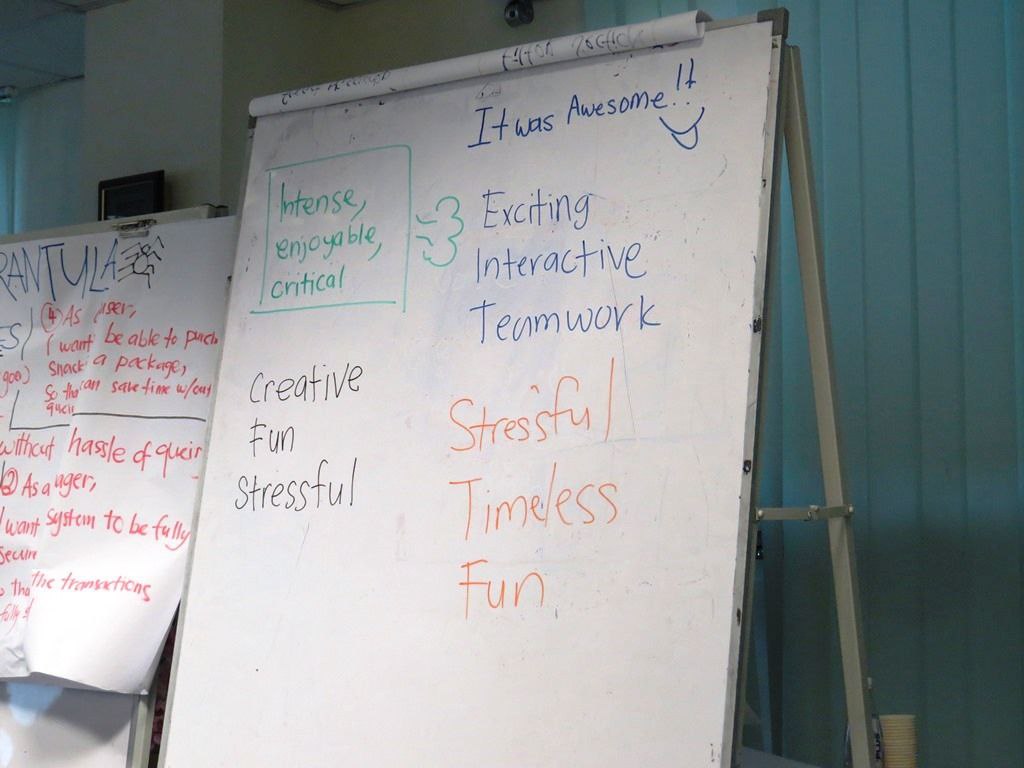 It was Awesome!!
Intense,
enjoyable,
critical
Exciting
Interactive
Teamwork
Creative
Fun
Stressful
Stressful
Timeless
Fun
RANTULA
④ As user,
I want be able to purch
snack a package,
So tha can save time w/out
queu
ES)
goo)
without hassle of queir
② As a ager,
I want system to be fully
secure
tha the transactions
fully